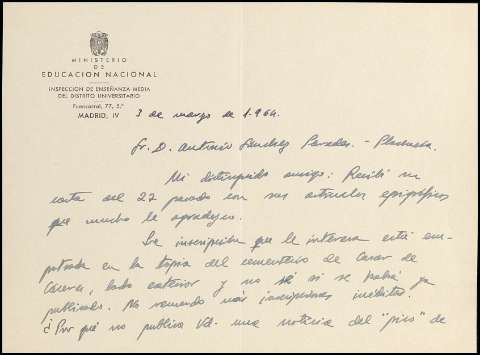 MINISTERIO
DE
EDUCACION NACIONAL
INSPECCION DE ENSEÑANZA MEDIA
DEL DISTRITO UNIVERSITARIO
Fuencarral, 77, 5.º
MADRID, IV
3 de marzo de 1.964.
Sr. D. Antonio Sánchez Paredes. - Plasencia.
Mi distinguido amigo: Recibí su
carta del 22 pasado con sus artículos epigráficos
que mucho le agradezco.
La inscripción que le interesa está em-
potrada en la tapia del cementerio de Casar de
Cáceres, lado exterior y no sé si se habrá ya
publicado. No recuerdo más inscripciones inéditas.
¿Por qué no publica Vd. una noticia del "pies" de